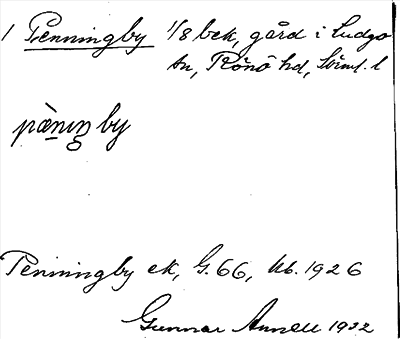 1 Penningby 1/8 bek, gård i Ludgo
sn, Rönö hd, Sörml. l
pàniŋby
Penningby ek, G. 66, Utb. 1926
Gunnar Annell 1932